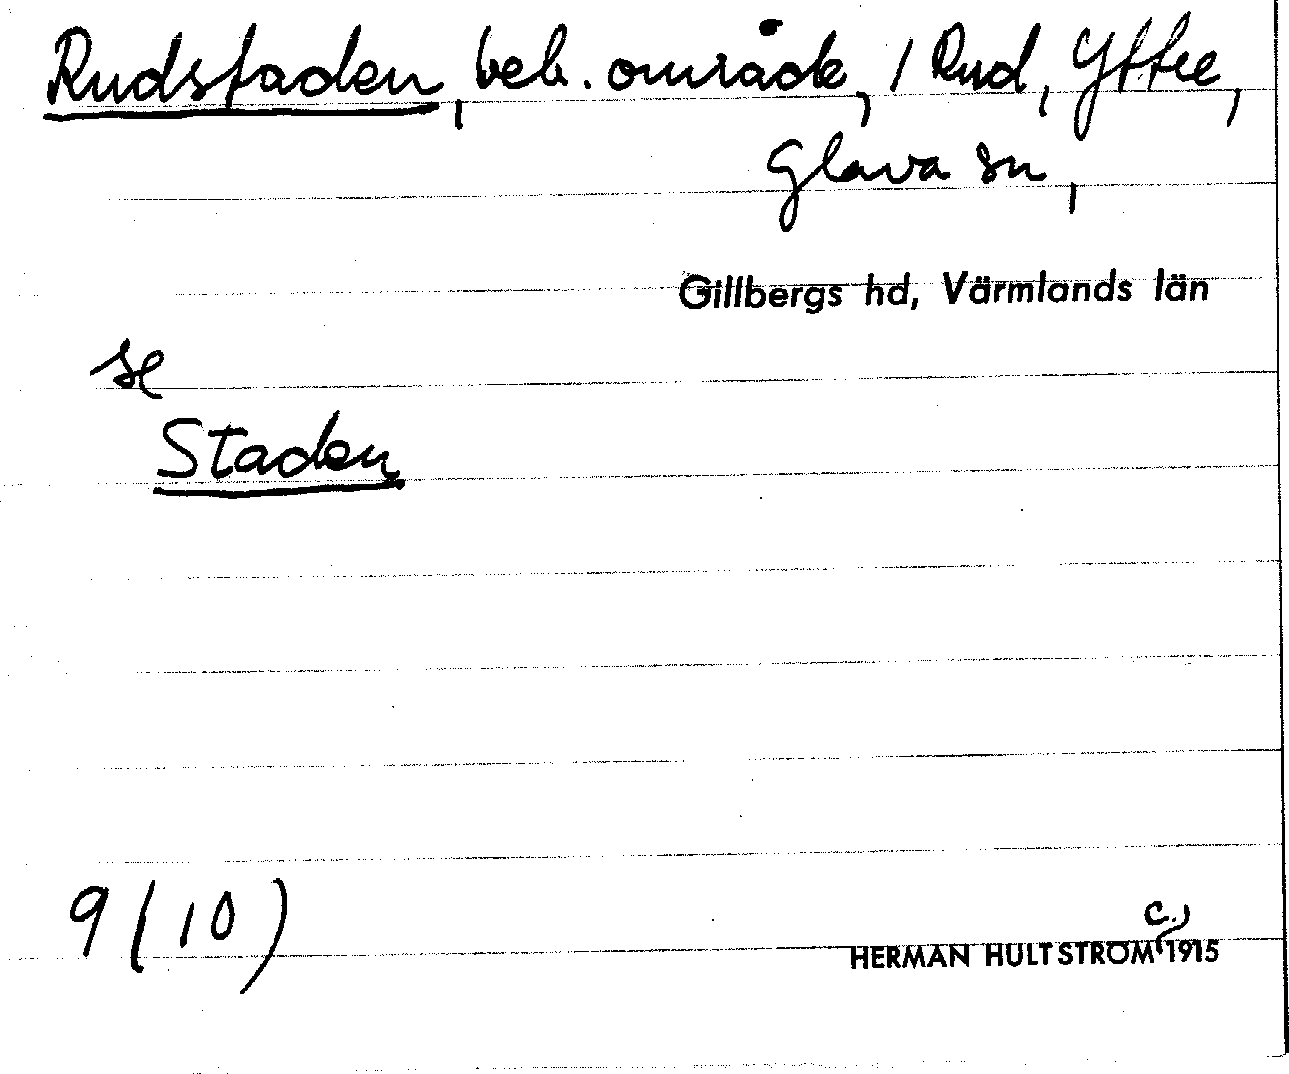 Rudstaden, beb. område, 1 Rud, Yttre,
Glava sn,
Gillbergs hd, Värmlands län
se
Staden
9 (10)
c.
HERMAN HULTSTRÖM 1915